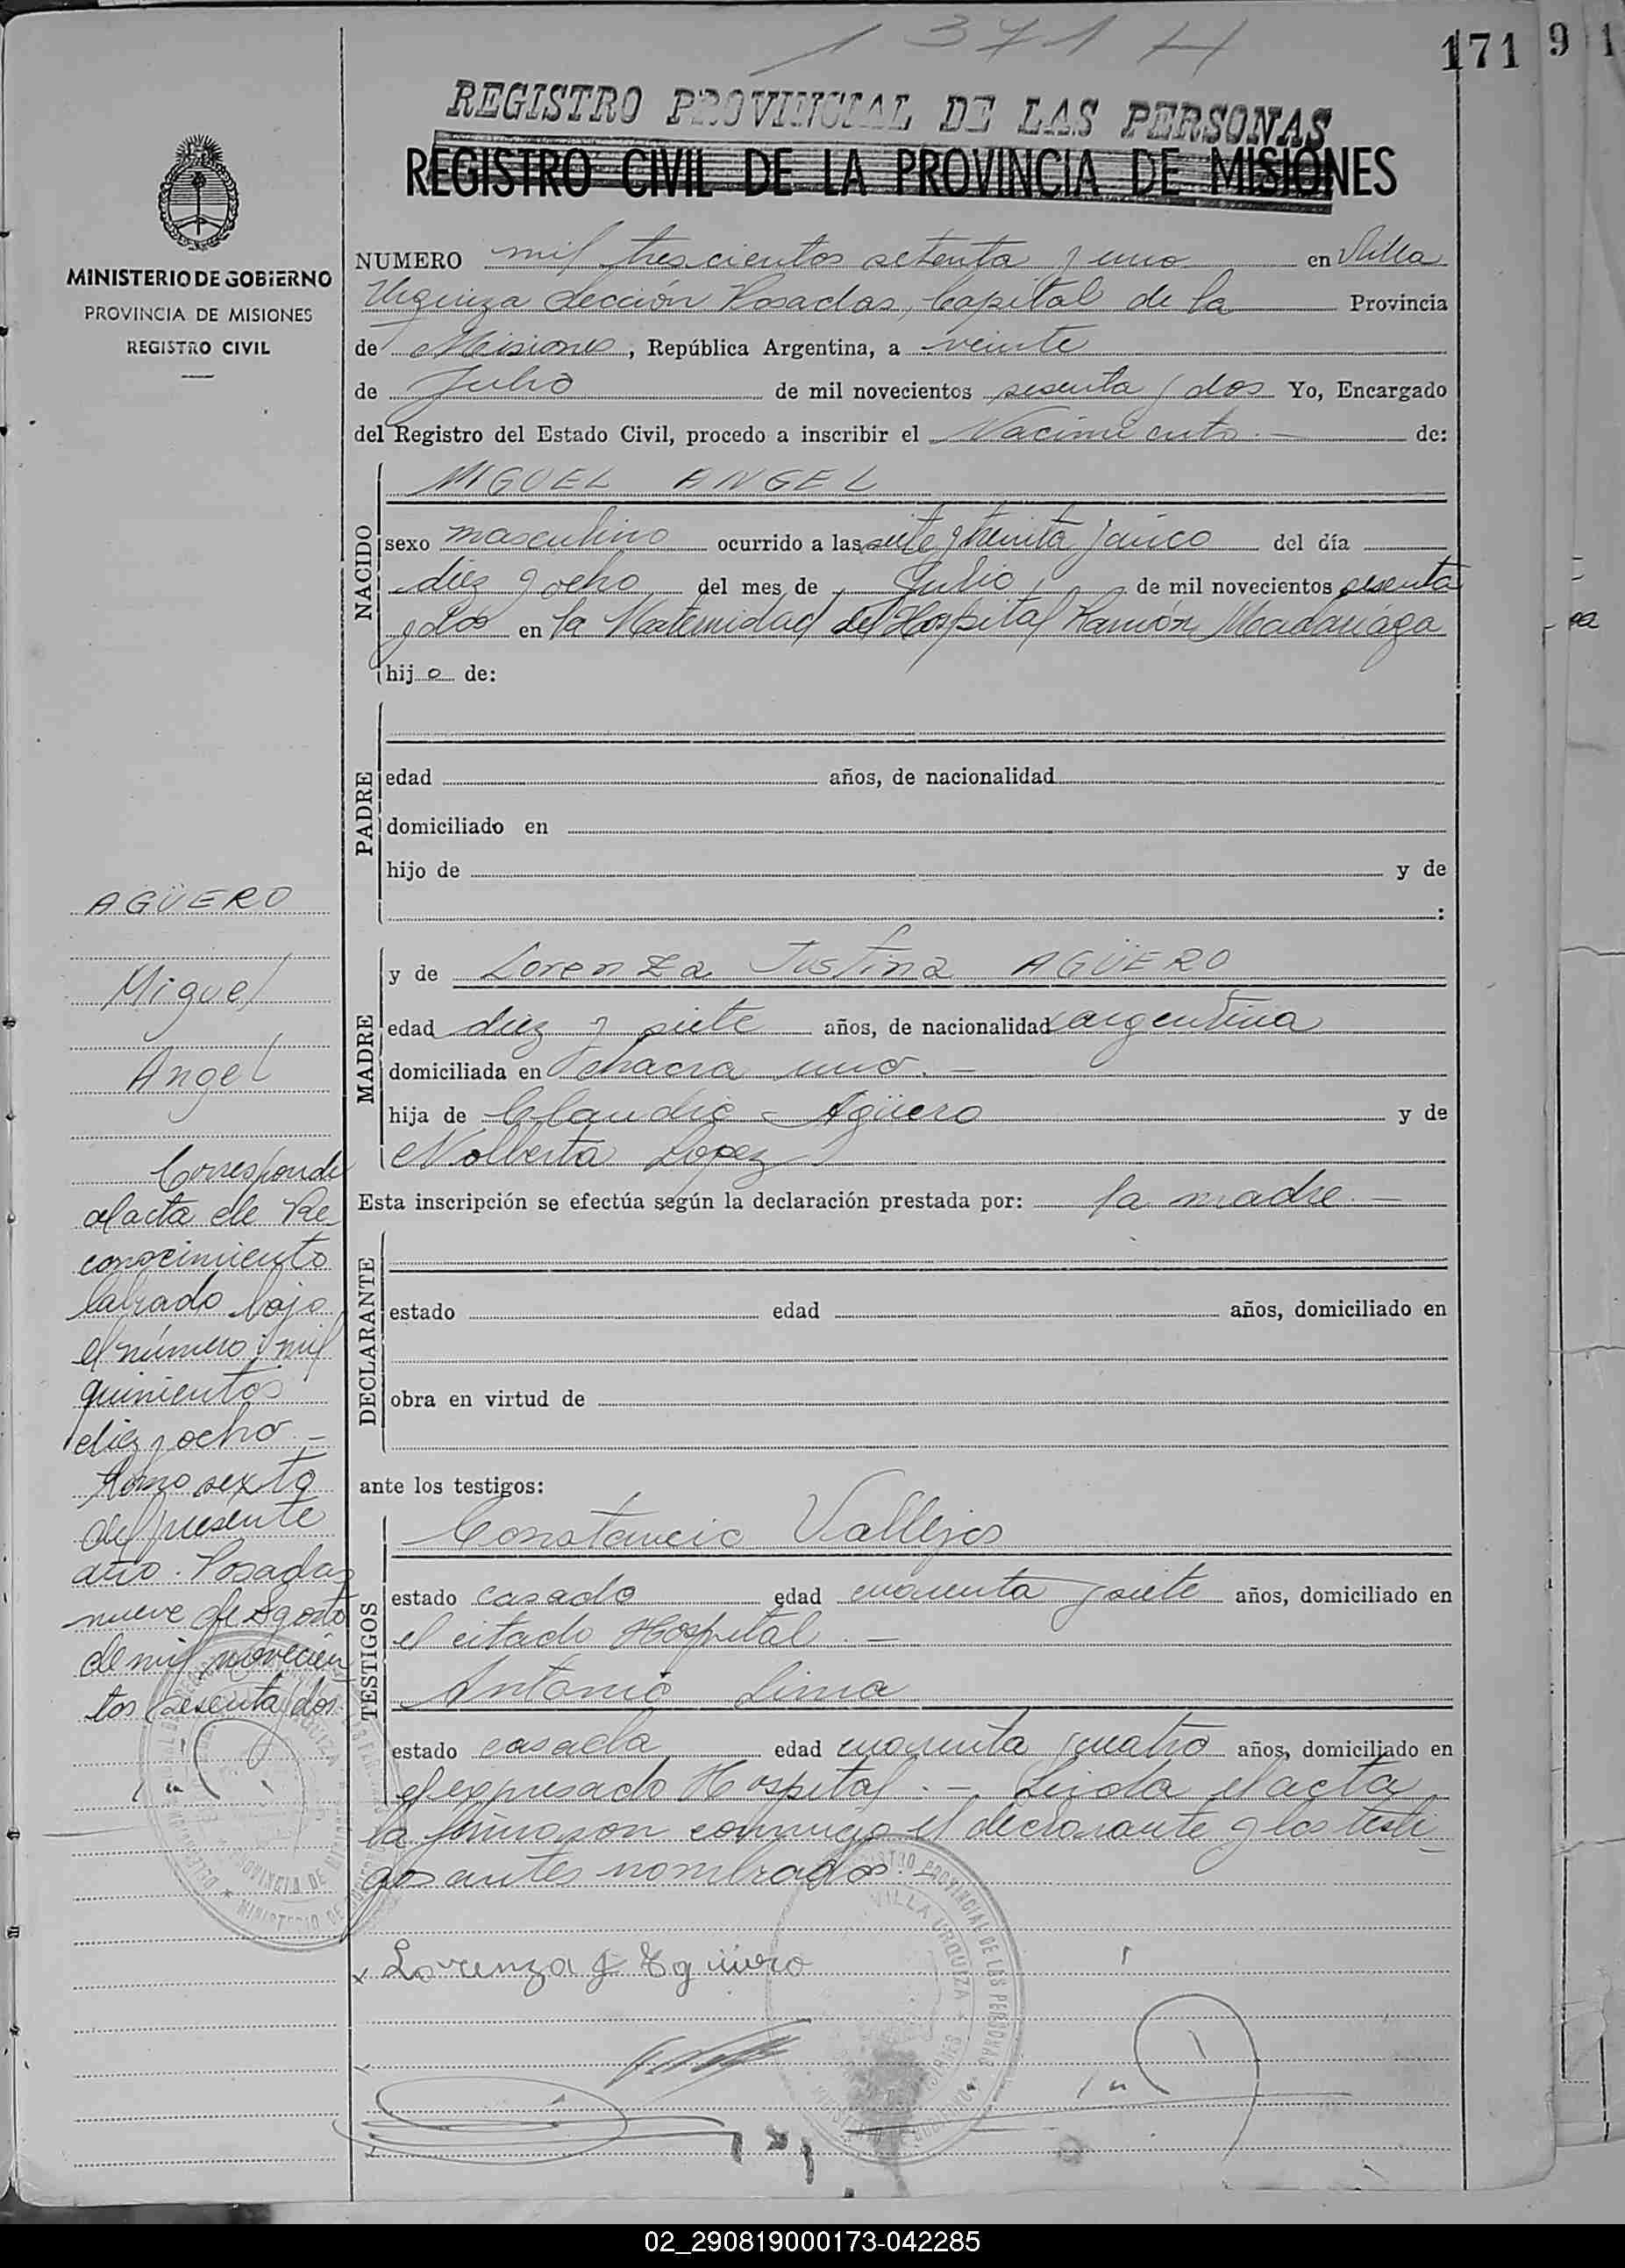 1371 H
171
9 1
REGISTRO PROVINCIAL DE LAS PERSONAS
REGISTRO CIVIL DE LA PROVINCIA DE MISIONES
MINISTERIO DE GOBIERNO
PROVINCIA DE MISIONES
REGISTRO CIVIL
NUMERO mil trescientos setenta y uno en Villa
Urquiza Sección Posadas, Capital de la Provincia
de Misiones, República Argentina, a veinte
de Julio de mil novecientos sesenta y dos Yo, Encargado
del Registro del Estado Civil, procedo a inscribir el Nacimiento.- de:
NACIDO
MIGUEL ANGEL
sexo masculino ocurrido a las siete y treinta y cinco del día
diez y ocho del mes de Julio de mil novecientos sesenta
y dos en la Maternidad del Hospital Ramón Madariaga
hijo de:
PADRE
edad años, de nacionalidad
domiciliado en
hijo de y de
:
MADRE
y de Lorenza Justina AGÜERO
edad diez y siete años, de nacionalidad argentina
domiciliada en chacra uno.-
hija de Claudio Agüero y de
Nolberta Lopez
Esta inscripción se efectúa según la declaración prestada por: la madre.-
DECLARANTE
estado edad años, domiciliado en
obra en virtud de
ante los testigos:
TESTIGOS
Constancio Vallejos
estado casado edad cuarenta y siete años, domiciliado en
el citado Hospital.-
Antonio Lima
estado casada edad cuarenta y cuatro años, domiciliado en
el expresado Hospital.- Leida el acta
la firmaron conmigo el declarante y los testi
gos antes nombrados.-
Lorenza J Aguero
AGÜERO
Miguel
Angel
Corresponde
al acta de Re
conocimiento
labrado bajo
el número: mil
quinientos
diez y ocho -
tomo sexto
del presente
año. Posadas
nueve de Agosto
de mil novecien
tos sesenta y dos
REGISTRO PROVINCIAL DE LAS PERSONAS
VILLA URQUIZA
02_290819000173-042285